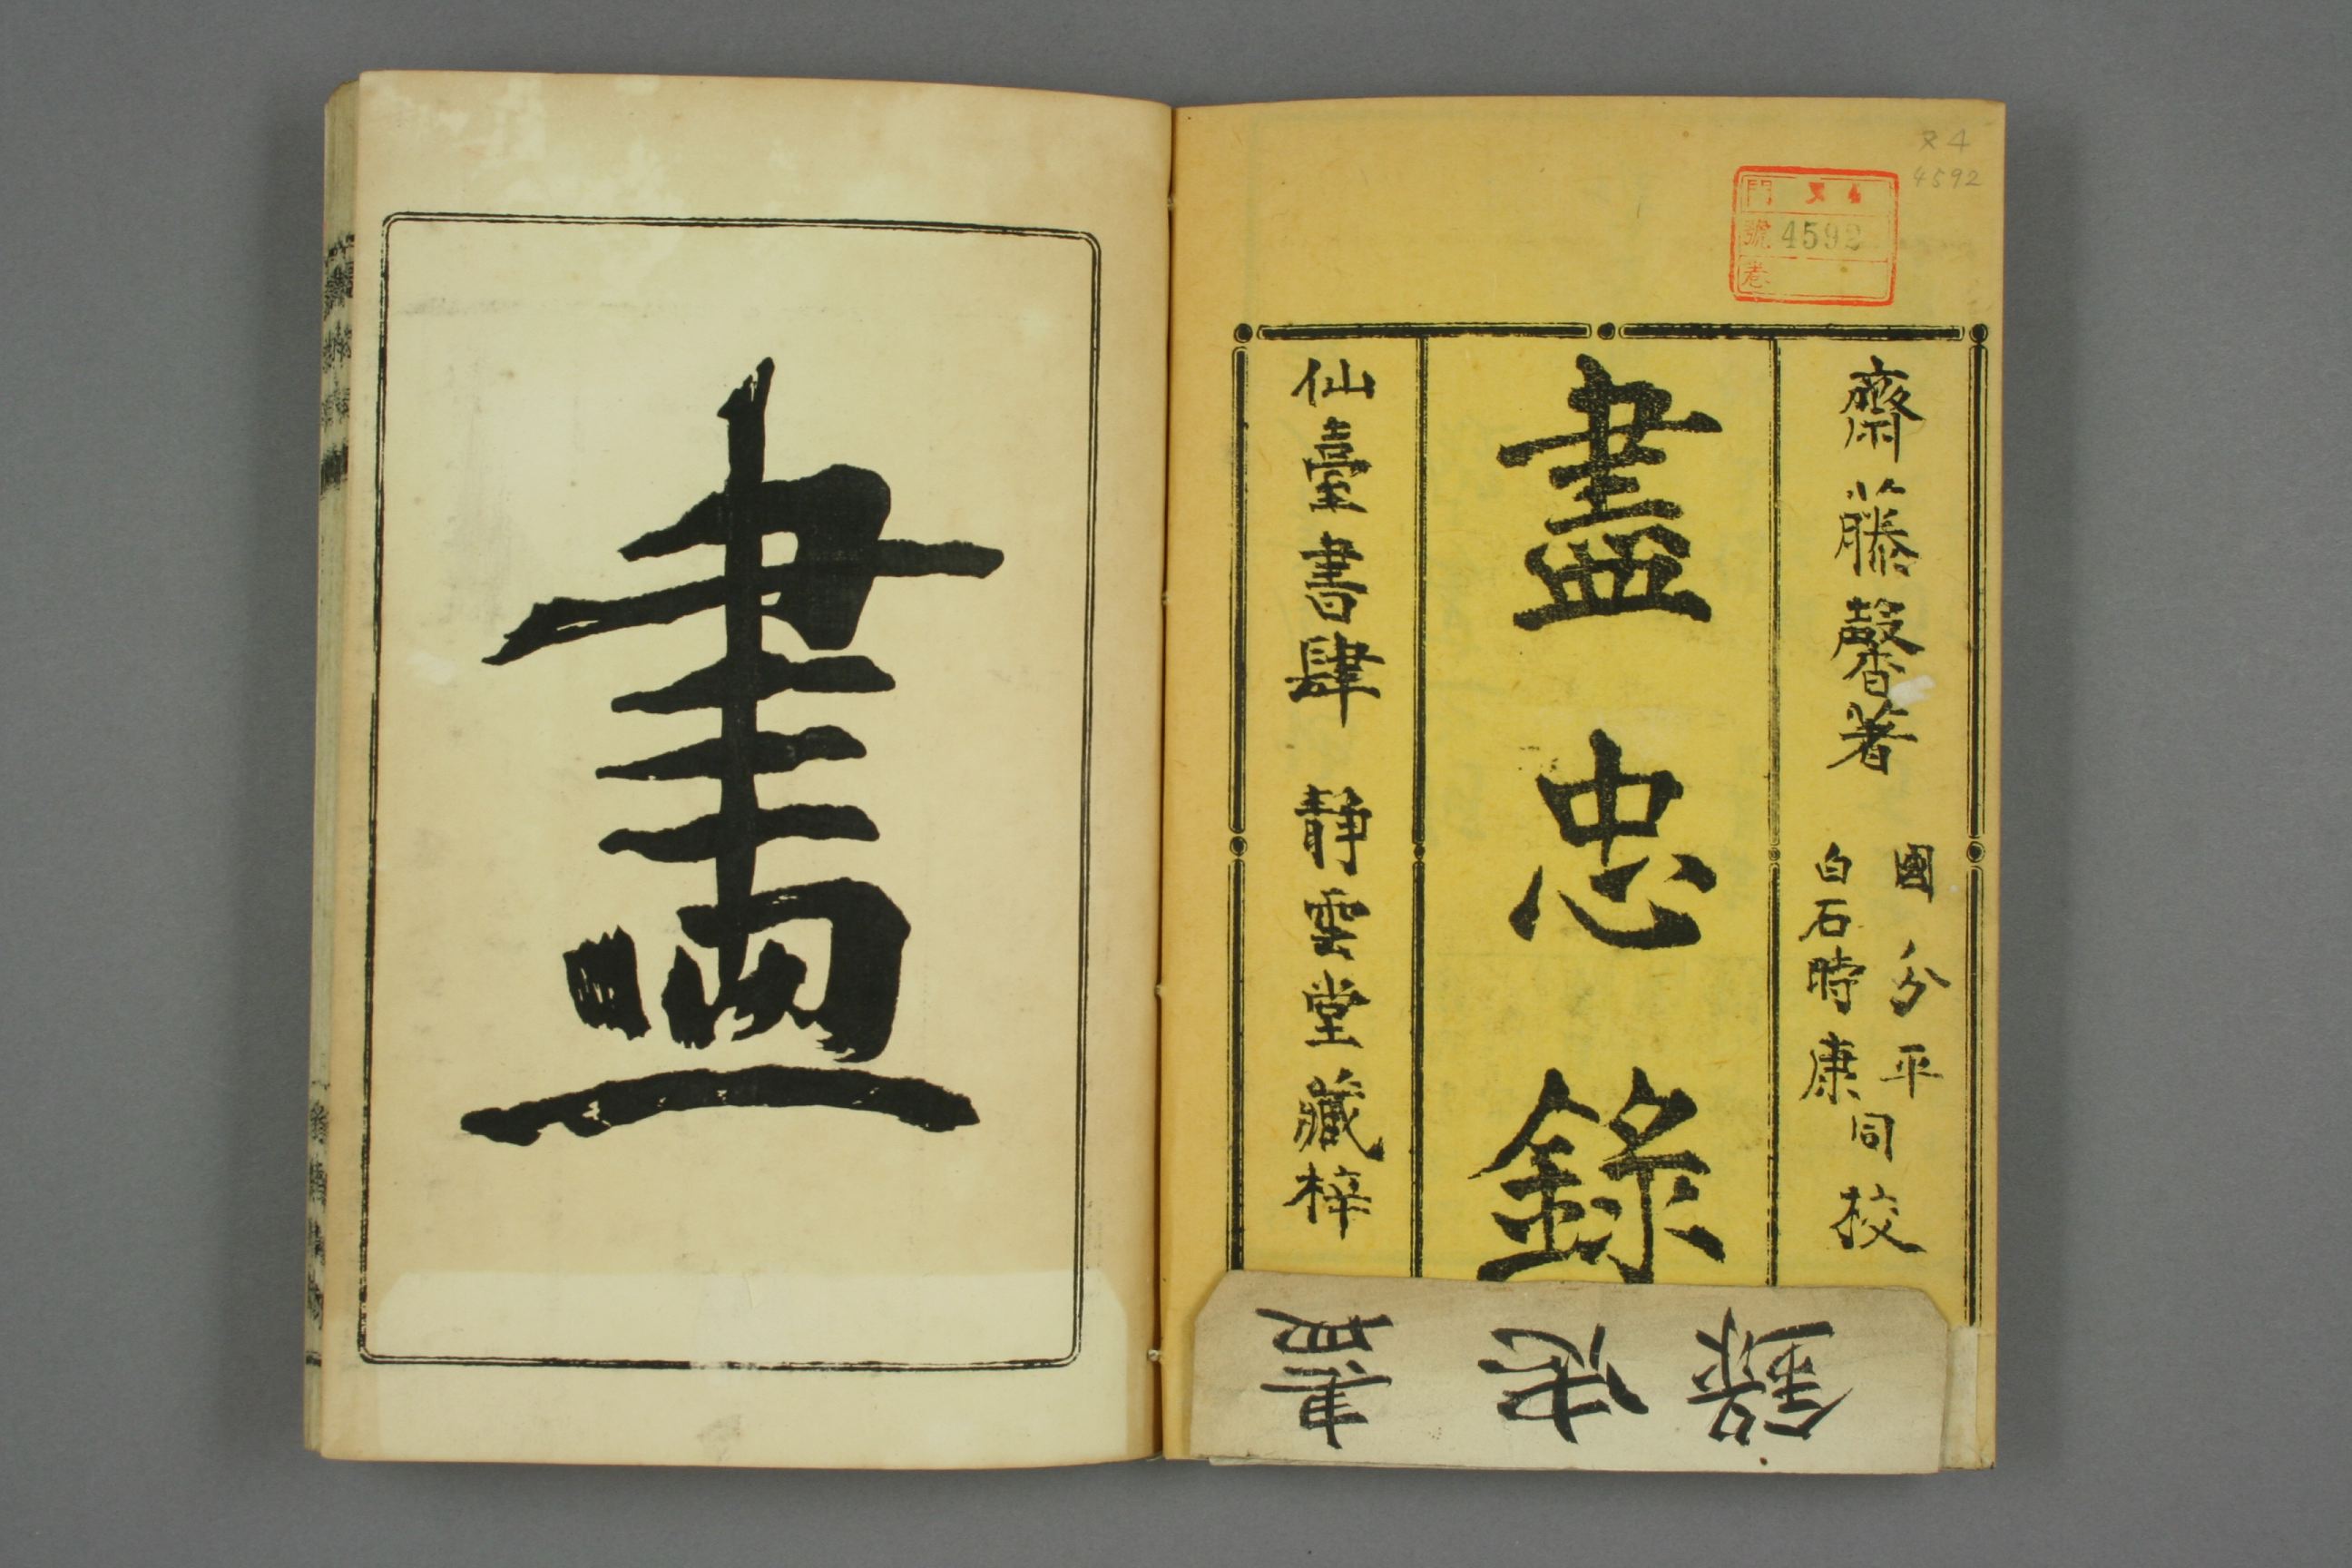 ヌ4
4592
門 ヌ4
號 4592
卷
齋藤馨著
國分平
白石時康
同校
盡忠錄
仙臺書肆 靜雲堂藏梓
盡忠錄
盡